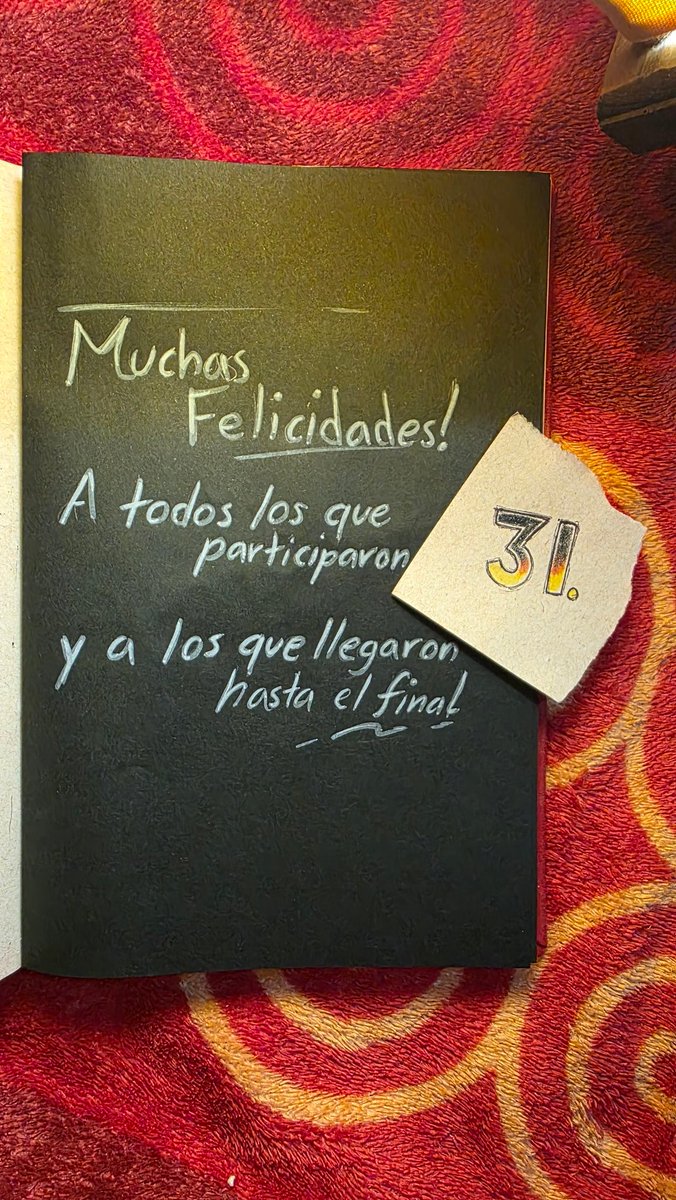 Muchas
Felicidades!
A todos los que
participaron
31.
y a los que llegaron
hasta el final